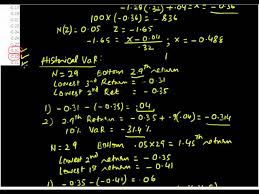 -1.28(.32) + .04 = x = -0.36
100 x (-0.36) = -836
N(Z) = 0.05 Z = -1.65
-1.65 = x - 0.04 / .32 ; x = -0.488
Historical VaR:
N = 29 Bottom 2.9th return
Lowest 3rd Return = -0.31
Lowest 2nd Ret = -0.35
1) -0.31 - (-0.35) = .04
2) 2.9th Return = -0.35 + .9(.04) = -0.314
10% VaR = -31.4%
N = 29 Bottom .05x29 = 1.45th return
Lowest 2nd return = -0.35
Lowest 1st return = -0.41
1) -0.35 - (-0.41) = .06